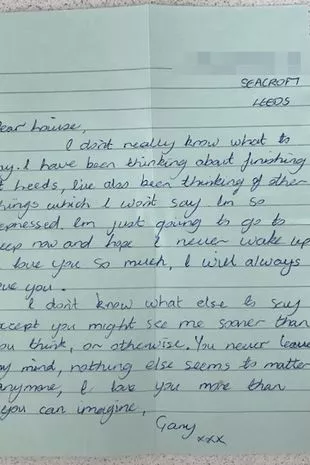 SEACROFT
LEEDS
ear Louise,
I don't really know what to
ay. I have been thinking about finishing
t Leeds, I've also been thinking of other
hings which I won't say I'm so
epressed. I'm just going to go to
eep now and hope I never wake up
love you so much, I will always
ve you.
I don't know what else to say
xcept you might see me sooner than
ou think, or otherwise. You never leave
y mind, nothing else seems to matter
anymore, I love you more than
you can imagine,
Gary
xxx